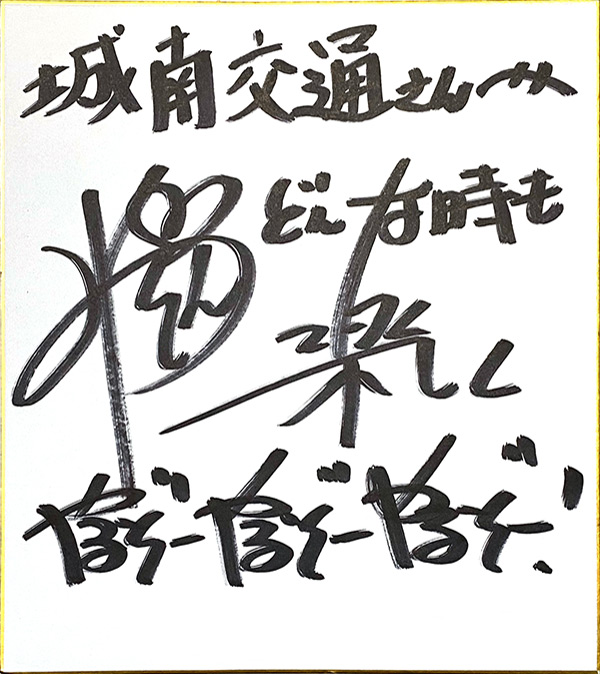 城南交通さんへ
どんな時も
楽しく
やるぞーやるぞーやるぞ!